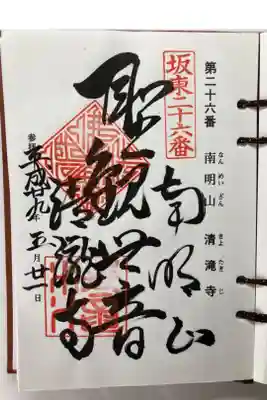 第二十六番
南明山 清滝寺
なんめいざん きよたきじ
坂東二十六番
南明山
聖観世音
清瀧寺
参拝
平成十九年 五月廿一日